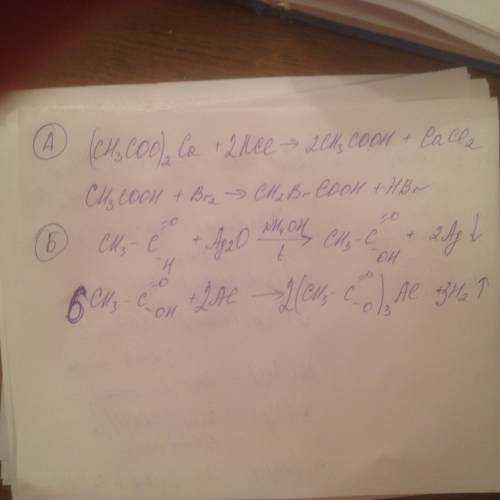 А (CH3COO)2Ca + 2HCl → 2CH3COOH + CaCl2
CH3COOH + Br2 → CH2BrCOOH + HBr
Б CH3 - C =O -H + Ag2O NH4OH t → CH3 - C =O -OH + 2Ag↓
6CH3 - C =O -OH + 2Al → 2(CH3 - C =O -O)3Al + 3H2↑